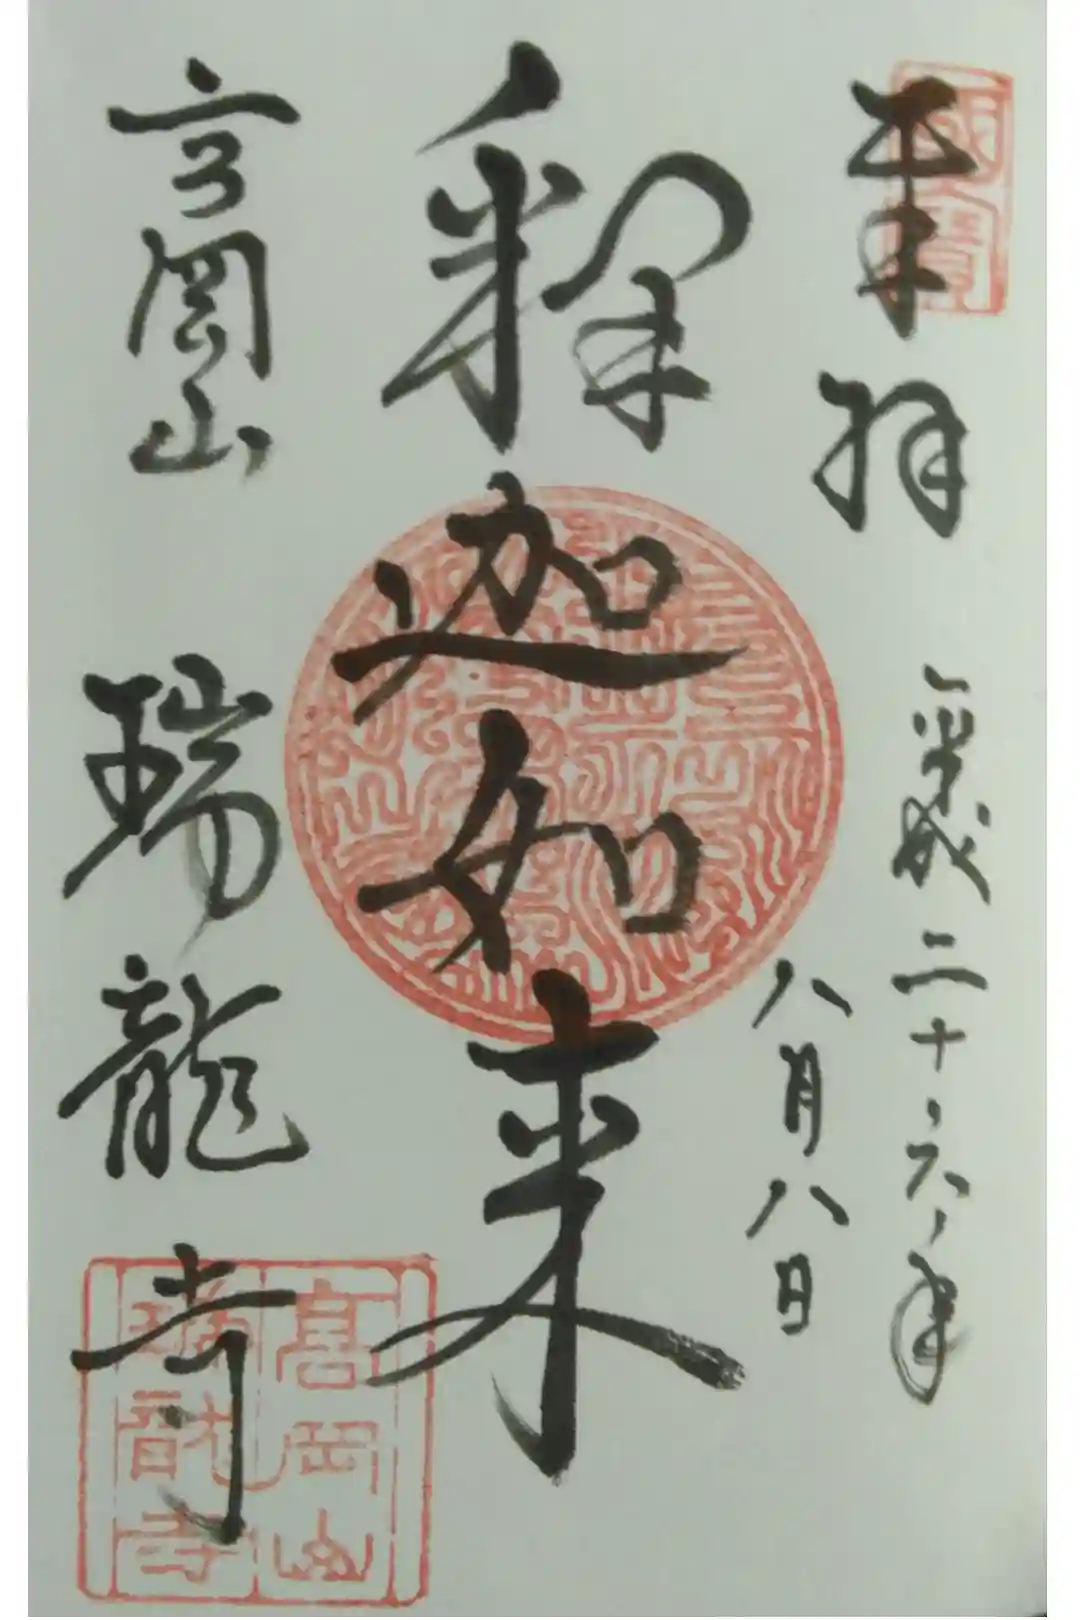 奉拝
國寶
平成二十六年
八月八日
釋迦如来
高岡山
瑞龍寺
高岡山
瑞龍寺